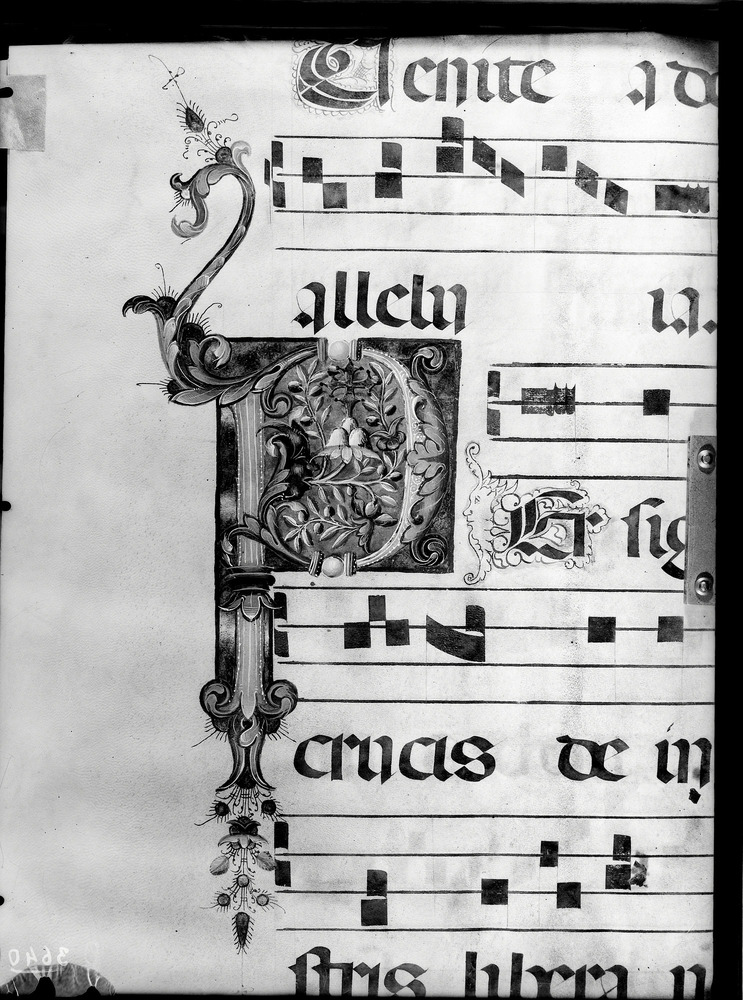 Venite ado
alleluya.
P Er sig
crucis de ini
stris libera n
3640